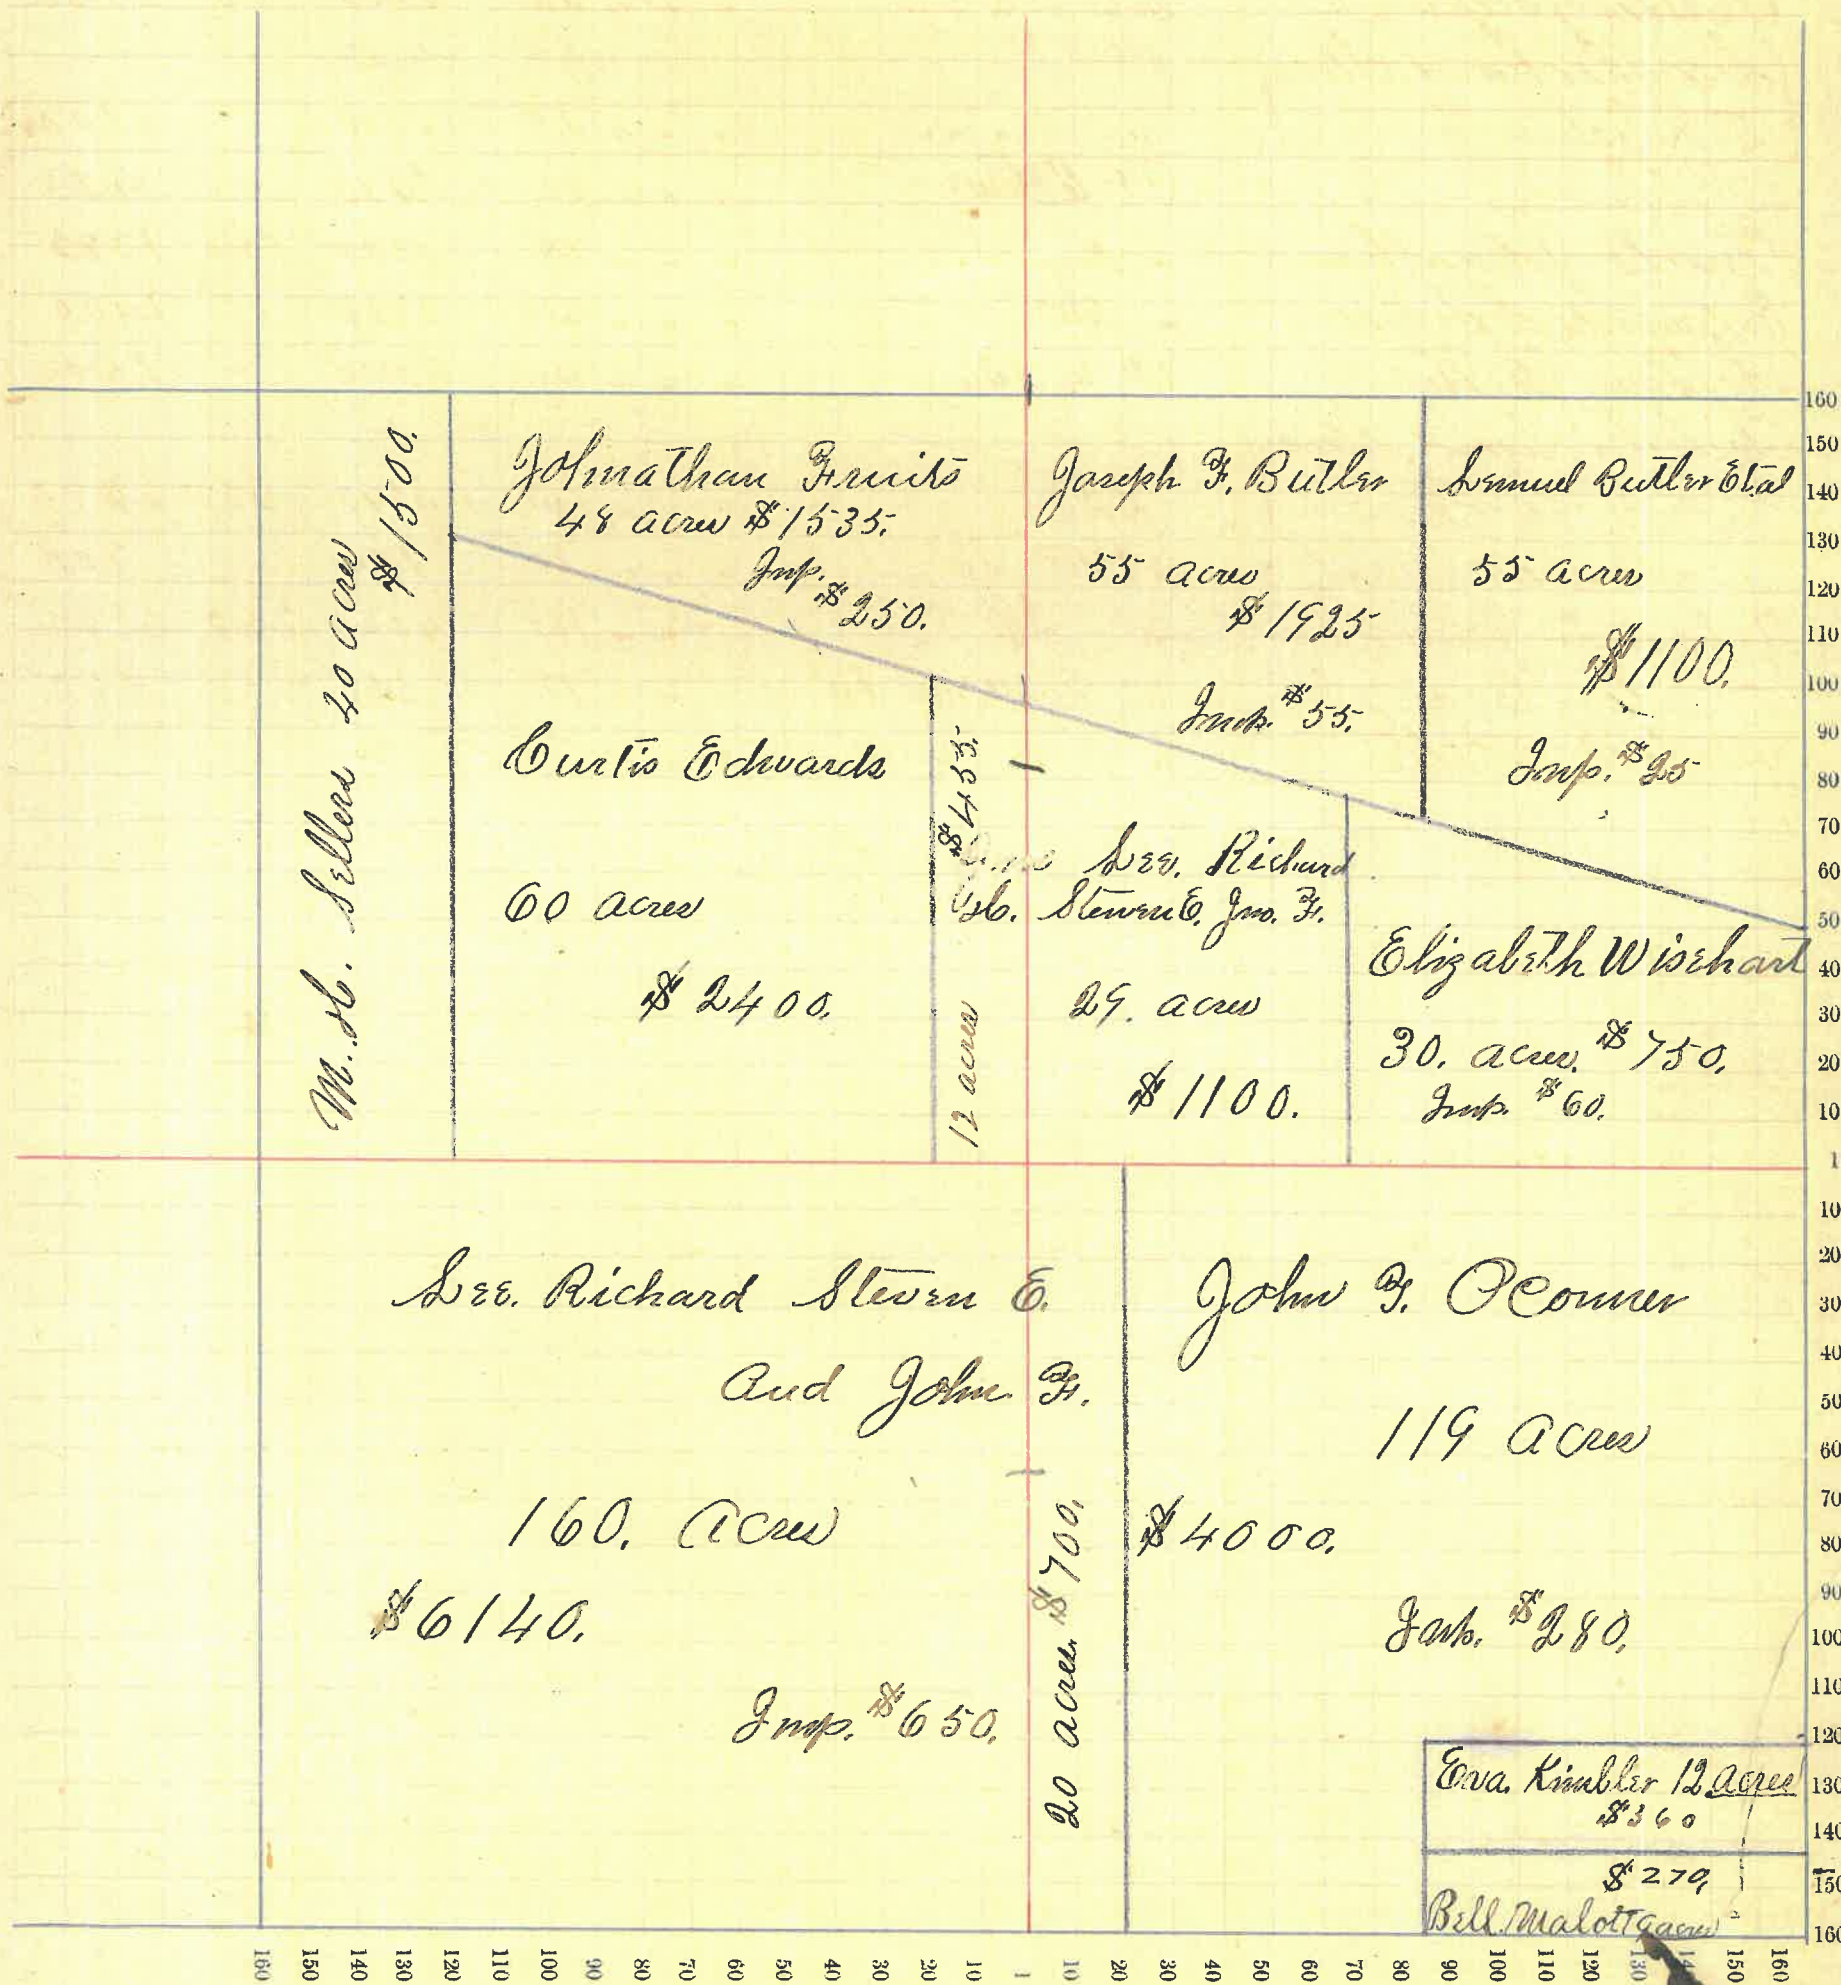 M. H. Sellers 40 acres
$1500.
Johnathan Fruits
48 acres $1535.
Imp.
$250.
Joseph F. Butler
55 acres
$1925
Imp. $55.
Lemuel Butler Etal
55 acres
$1100.
Imp. $25
Curtis Edwards
60 acres
$2400.
12 acres $455.
Lee. Richard
H. Steven E. Jno. F.
29. acres
$1100.
Elizabeth Wisehart
30. acres. $750.
Imp. $60.
Lee. Richard Steven E.
and John F.
160. Acres
$6140.
Imp. $650.
20 acres. $700.
John F. OConner
119 Acres
$4000.
Imp. $280.
Eva. Kimbler 12 acres
$360
$270,
Bell Malott 9 acres
160
150
140
130
120
110
100
90
80
70
60
50
40
30
20
10
1
10
20
30
40
50
60
70
80
90
100
110
120
130
140
150
160
160 150 140 130 120 110 100 90 80 70 60 50 40 30 20 10 1 10 20 30 40 50 60 70 80 90 100 110 120 130 14 150 160